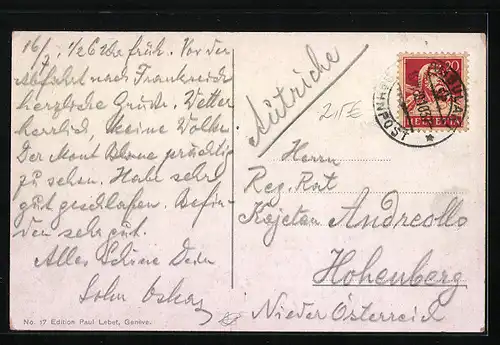 16/7. 1/2 6 Uhr früh. Vor der
Abfahrt nach Frankreich
herzliche Grüße. Wetter
herrlich, keine Wolke.
Der Mont Blanc prächtig
zu sehen. Habe sehr
gut geschlafen. Befin-
den sehr gut.
Alles Schöne Dein
Sohn Oskar
No. 17 Edition Paul Lebet, Genève.
Autriche
215E
Herrn
Reg. Rat
Kajetan Andreollo
Hohenberg
Nieder Österreich
20
HELVETIA
AMBULANT
BAHNPOST